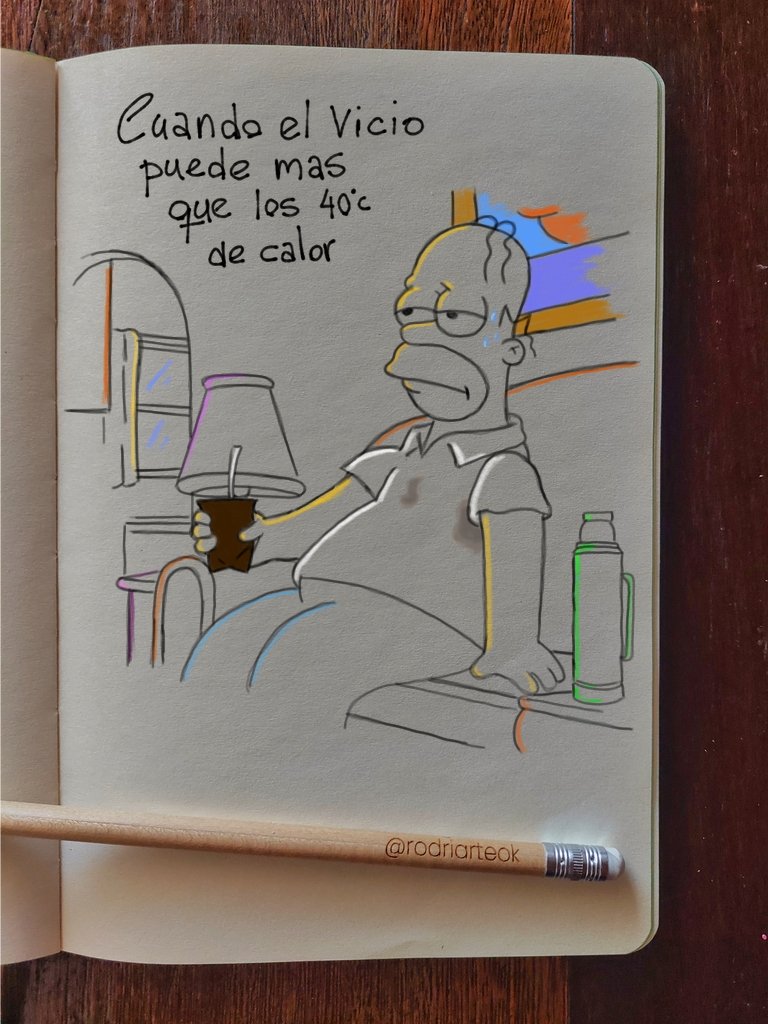 Cuando el Vicio
puede mas
que los 40°c
de calor
@rodriarteok